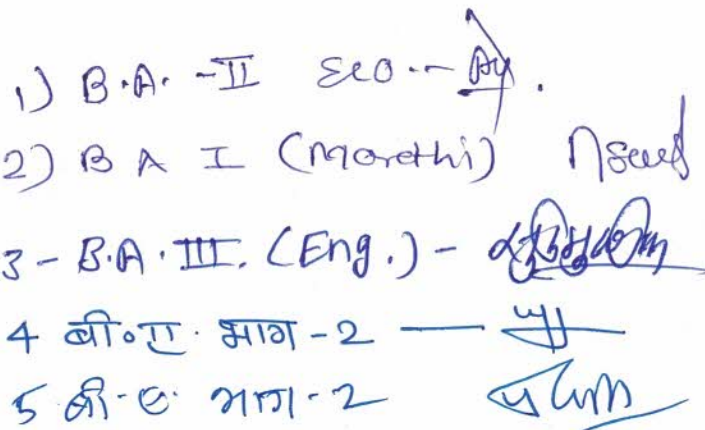 1) B.A. - II Eco. -
2) B A I (Marathi)
3 - B.A. III. (Eng.) -
4 बी०ए. भाग - 2 —
5 बी.ए. भाग - 2